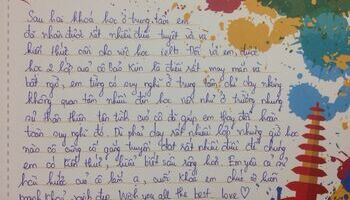 Sau hai khoá học ở trung tâm em
đã nhận được rất nhiều điều tuyệt và và
kiến thức cần cho việc học ielt. Đối với em, được
học 2 lớp của cô Bảo Kim là điều rất may mắn và
bất ngờ, em từng có suy nghĩ ở trung tâm chỉ dạy nhưng
không quan tâm nhiều đến học nơi như ở trường nhưng
sự thân thiện tận tình của cô đã giúp em thay đổi hoàn
toàn suy nghĩ đó. Dù phải dạy rất nhiều lớp nhưng giờ học
nào cô cũng cố gắng truyền đạt rất nhiều điều để chúng
em có kiến thức, hiểu biết sâu rộng hơn. Em yêu cô và
hài hước của cô lắm ạ, cuối khoá em chúc cô luôn
mạnh khoẻ, xinh đẹp. Wish you all the best, love ♡